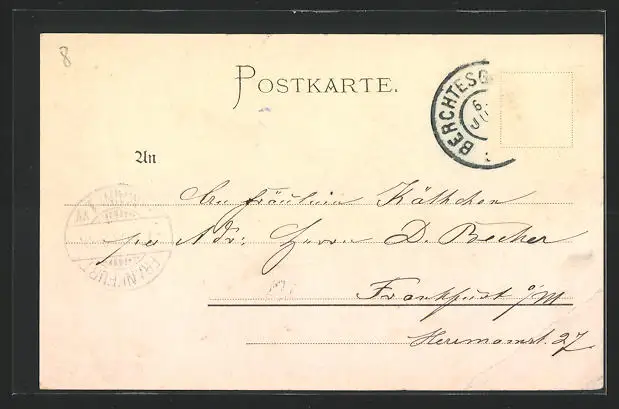 8
POSTKARTE.
BERCHTESG
6.
JU
An
An Fräulein Käthchen
per Adr: Herrn D. Becker
Frankfurt a/M
Hermannst. 27
FRANKFURT